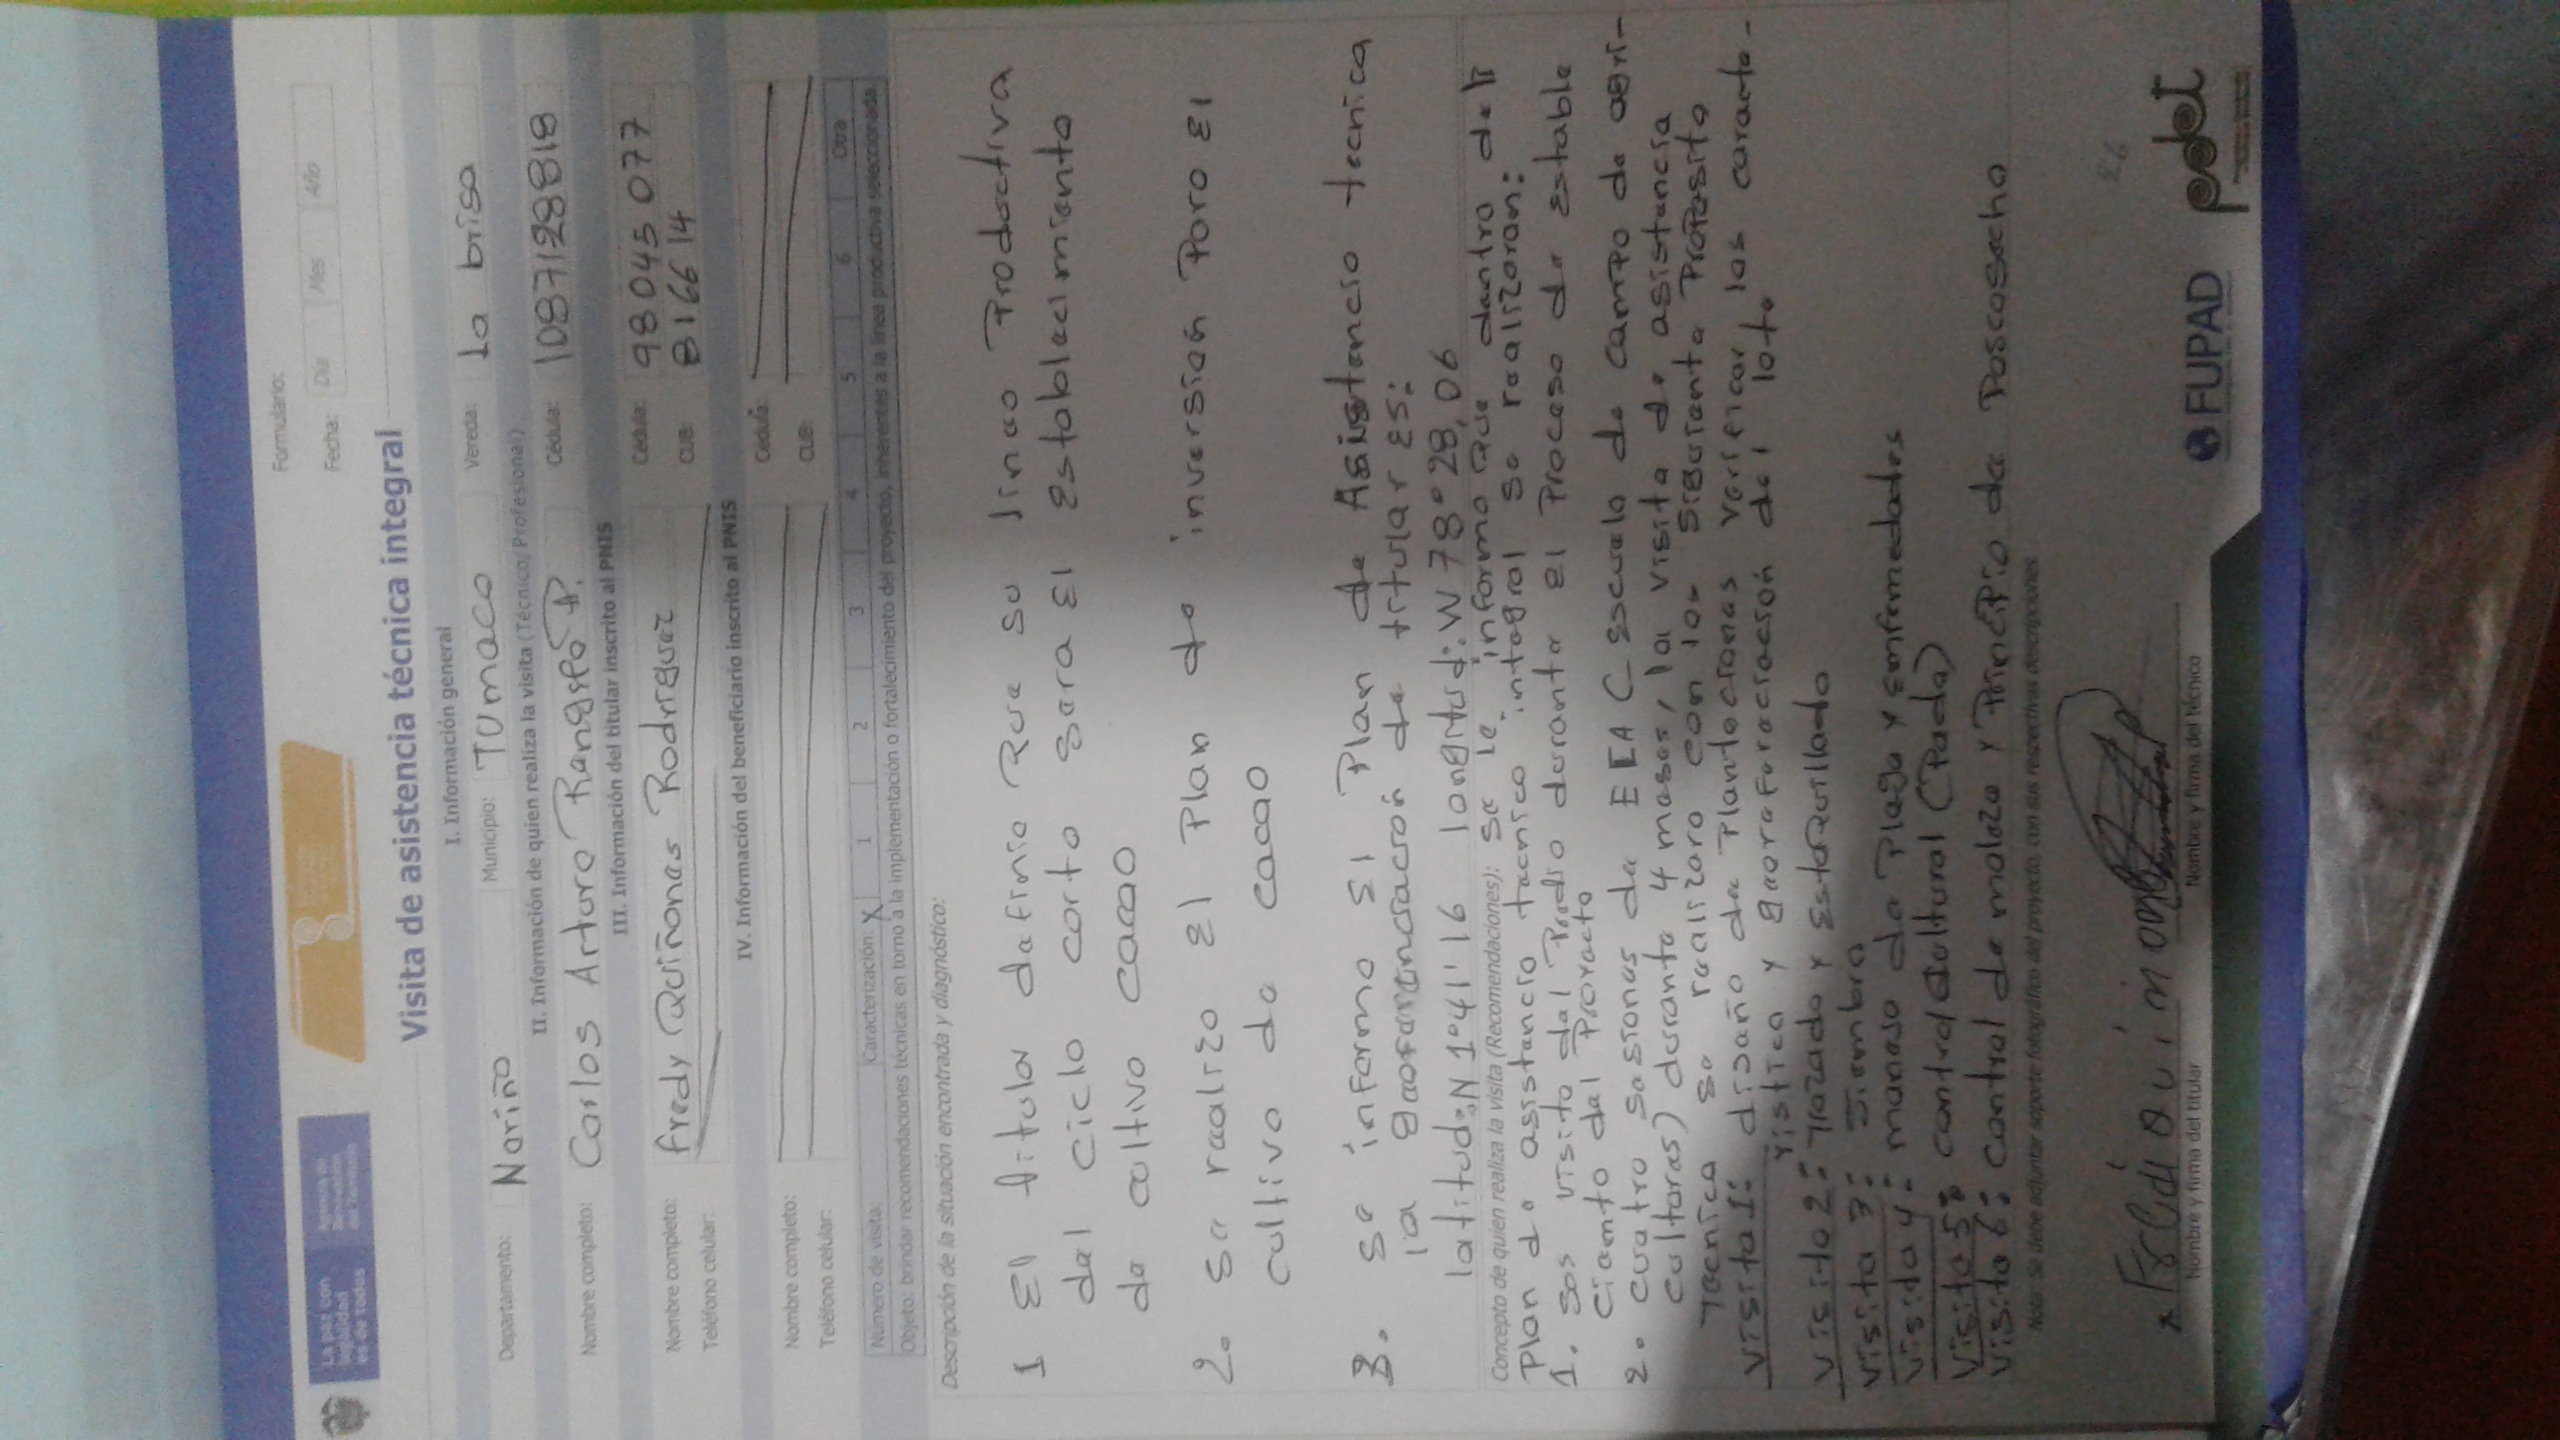 La paz con legalidad es de todos
Agencia de Renovación del Territorio
Formulario:
Fecha: Día Mes Año
Visita de asistencia técnica integral
I. Información general
Departamento: Nariño Municipio: TUmaco Vereda: la brisa
II. Información de quien realiza la visita (Técnico/Profesional)
Nombre completo: Carlos Arturo Rengifo P. Cédula: 1087128818
III. Información del titular inscrito al PNIS
Nombre completo: fredy Quiñones Rodriguez Cédula: 98045077
Teléfono celular: CUB: 816614
IV. Información del beneficiario inscrito al PNIS
Nombre completo: Cédula:
Teléfono celular: CUB:
Número de visita: Caracterización: X 1 2 3 4 5 6 Otra
Objeto: brindar recomendaciones técnicas en torno a la implementación o fortalecimiento del proyecto, inherentes a la línea productiva seleccionada
Descripción de la situación encontrada y diagnóstico:
1 El titular definio Que su linea Productiva
del ciclo corto sera El Establecimiento
de cultivo cacao
2. se realizo El Plan de inversión Para El
cultivo de cacao
3. se informo El Plan de Asistencia tecnica
la georenciación de titular Es:
latitud:N 1°41'16 longitud:W 78°28,06
Concepto de quien realiza la visita (Recomendaciones): se le informo Que dentro del
Plan de asistencia tecnico integral se realizaran:
1. sos visita dal Predio durante El Proceso de Estable
ciento del Proyecto
2. cuatro sesiones de ECA C Escuela de campo de agri-
cultoras) durante 4 meses, la visita de asistencia
Tecnica se realizara con los siguiente Proposito
Visita 1: diseño de Plantaciones verificar las caracte-
ristica y georeferenciación del lote
Visita 2: Trazado y Estaquillado
Visita 3: Siembra
Visita 4: manejo de Plaga y Enfermedades
Visita 5: control cultural (Poda)
Visita 6: control de maleza y Principio de Poscosecha
Nota: Se debe adjuntar soporte fotográfico del proyecto, con sus respectivas descripciones
Nombre y firma del titular Nombre y firma del técnico
26
FUPAD
pdet